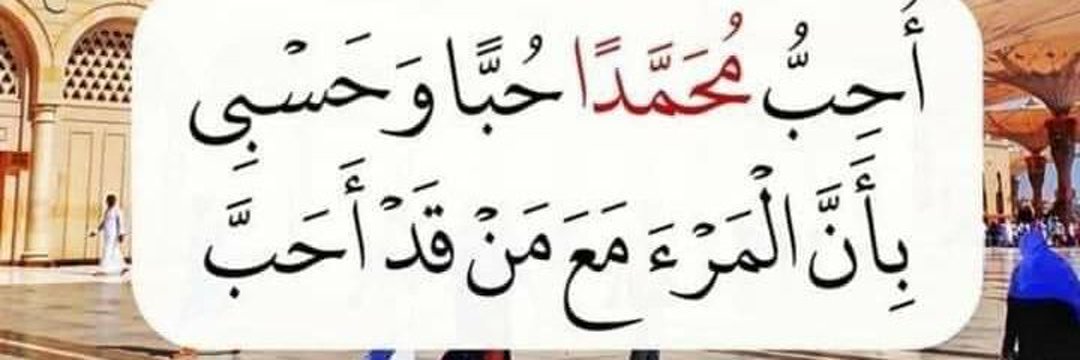 أُحِبُّ مُحَمَّدًا حُبًّا وَحَسْبِي
بِأَنَّ الْمَرْءَ مَعَ مَنْ قَدْ أَحَبَّ